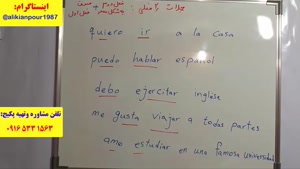 اینستاگرام:
@alikianpour1987
جملات ۲ فعلی:
quiero ir a la casa
puedo hablar español
debo ejercitar inglése
me gusta viajar a todas partes
ame estudiar en una famosa universidad
تلفن مشاوره وتهیه پکیج:
۰۹۱۶ ۵۳۳ ۱۵۶۳